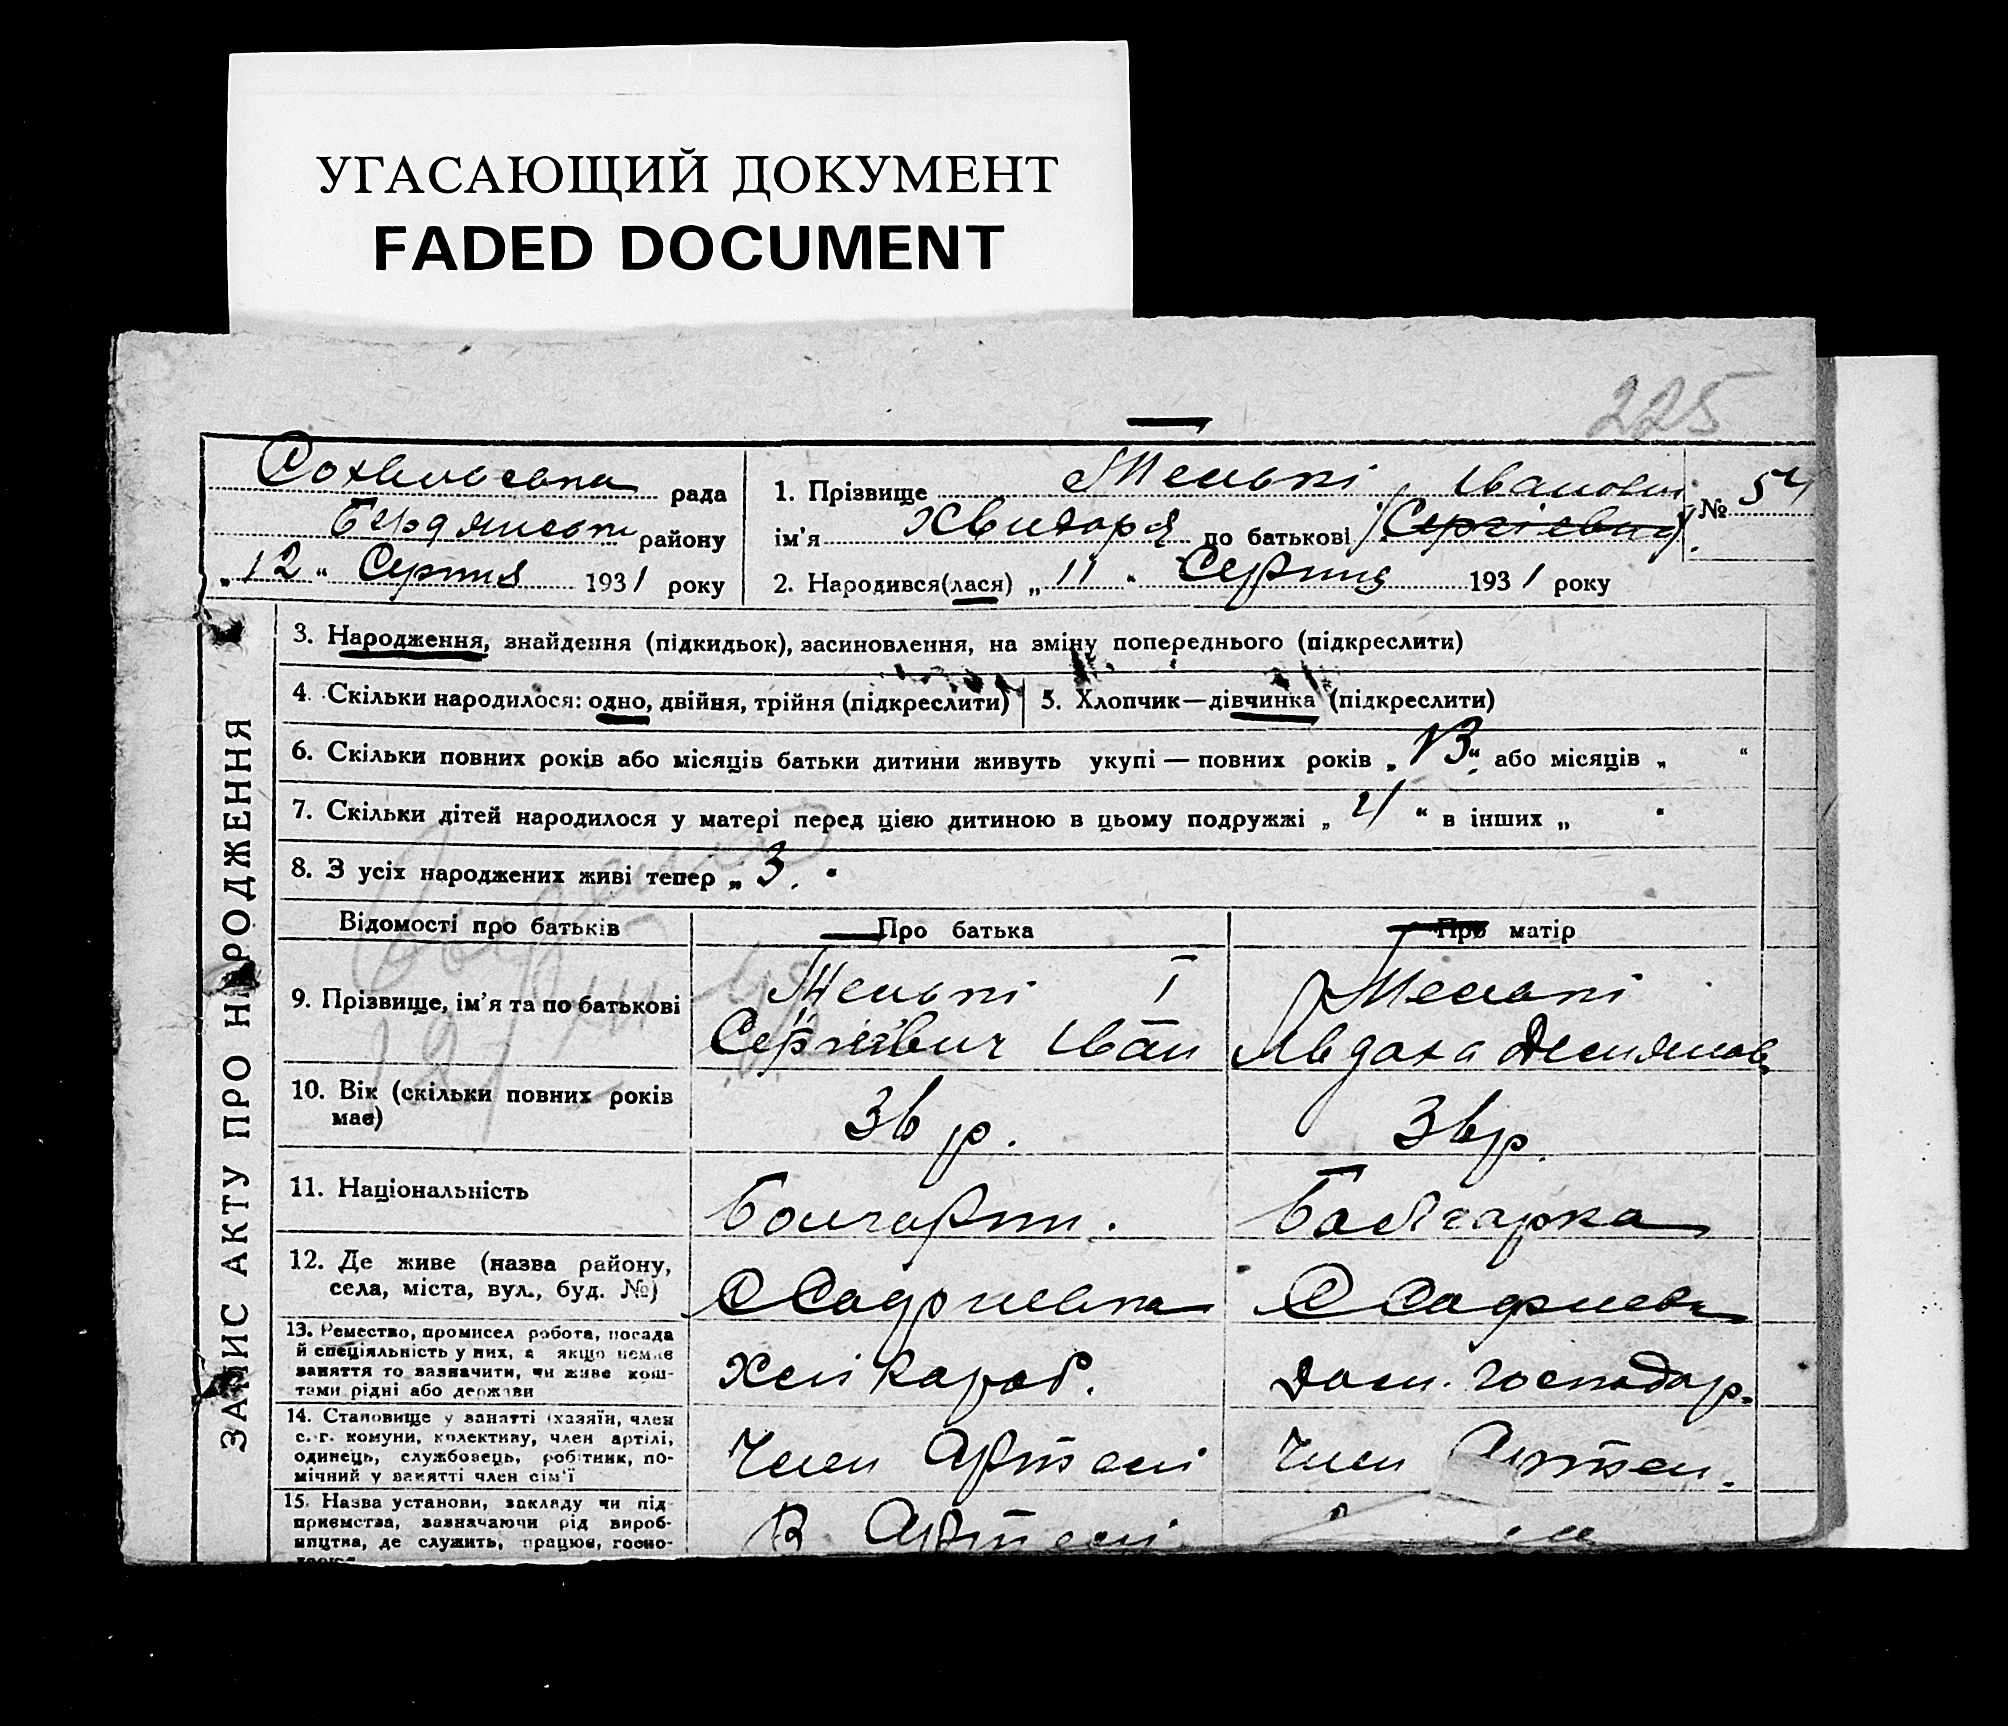 УГАСАЮЩИЙ ДОКУМЕНТ
FADED DOCUMENT
225
рада
Бердянськ району
„12“ Серпня 1931 року
1. Прізвище Мельні Іванови
ім'я Хведора по батькові Сергієвич
№ 54
2. Народився(лася) „11“ Серпня 1931 року
ЗАПИС АКТУ ПРО НАРОДЖЕННЯ
3. Народження, знайдення (підкидьок), засиновлення, на зміну попереднього (підкреслити)
4. Скільки народилося: одно, двійня, трійня (підкреслити)
5. Хлопчик—дівчинка (підкреслити)
6. Скільки повних років або місяців батьки дитини живуть укупі — повних років „13“ або місяців „ “
7. Скільки дітей народилося у матері перед цією дитиною в цьому подружжі „4“ в інших „ “
8. З усіх народжених живі тепер „3.“
Відомості про батьків
Про батька
Про матір
9. Прізвище, ім'я та по батькові
Сергієвич Іван
10. Вік (скільки повних років
має)
36 р.
36 р.
11. Національність
Болгарин.
Болгарка
12. Де живе (назва району,
села, міста, вул., буд. №)
13. Ремество, промисел робота, посада
й спеціяльність у них, а якщо немає
заняття то зазначити, чи живе кош-
тами рідні або держави
Хлібороб.
Дом. господар.
14. Становище у занятті (хазяїн, член
с.-г. комуни, колективу, член артілі,
одинець, службовець, робітник, по-
мічний у занятті член сім'ї
Член Артелі
Член Артелі.
15. Назва установи, закладу чи під-
приємства, зазначаючи рід вироб-
ництва, де служить, працює, госпо-
В Артелі